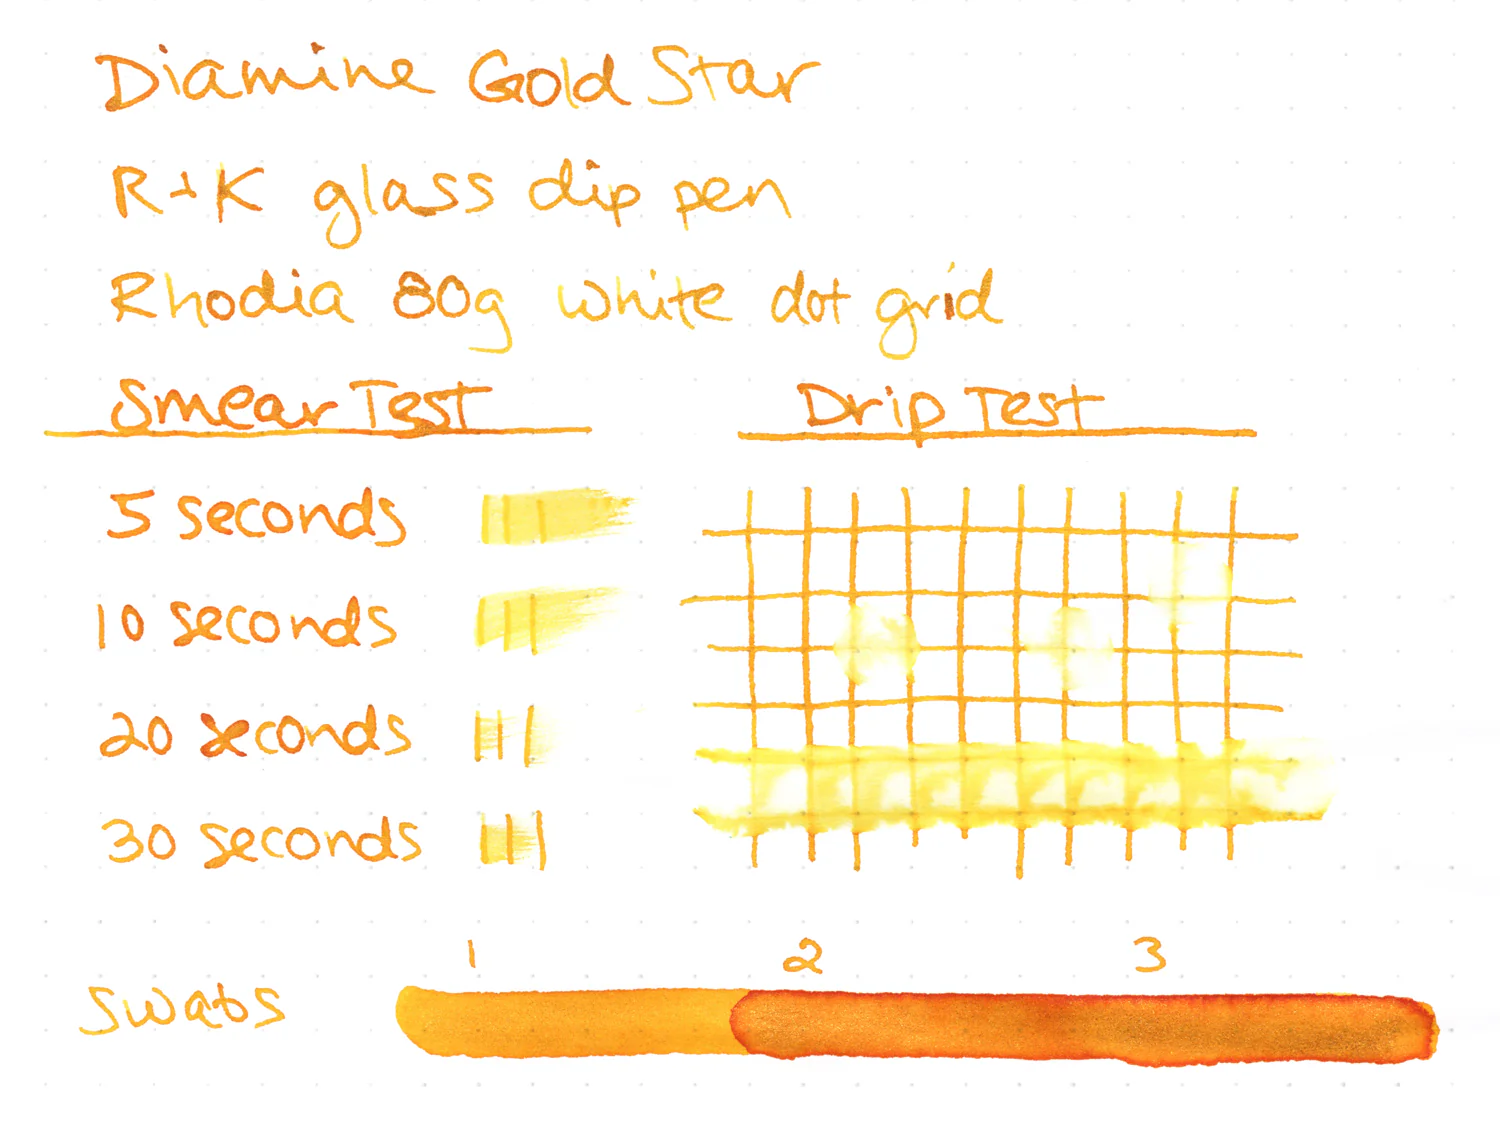 Diamine Gold Star
R+K glass dip pen
Rhodia 80g white dot grid
Smear Test
Drip Test
5 seconds
10 seconds
20 seconds
30 seconds
1 2 3
Swabs